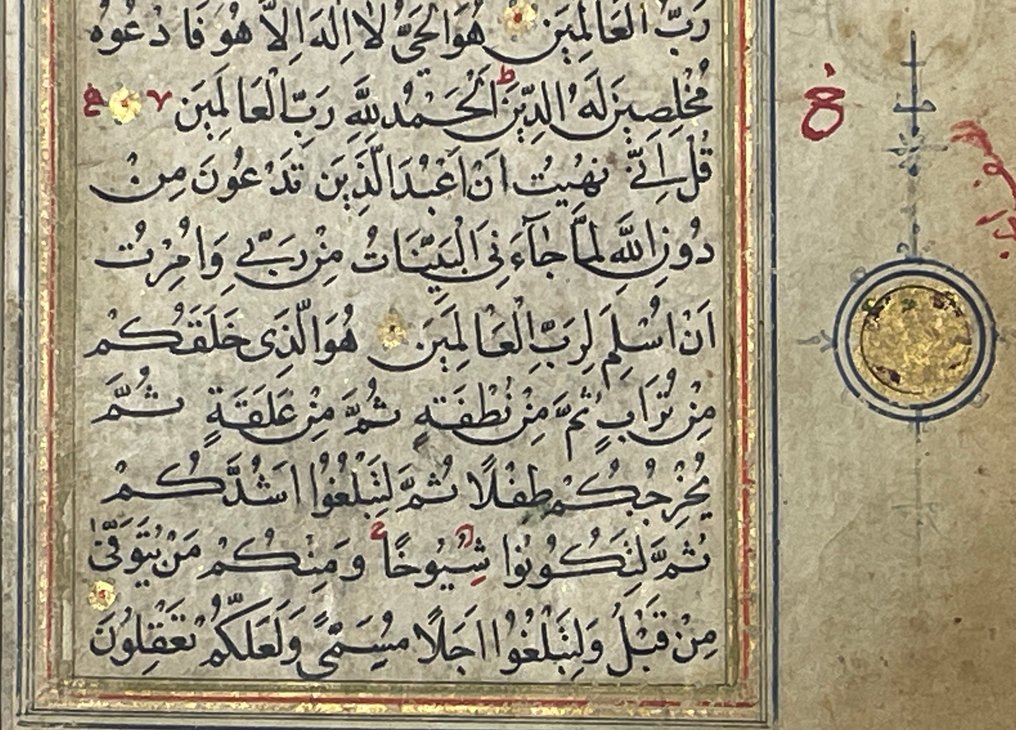 رَبُّ الْعَالَمِينَ هُوَ الْحَيُّ لَا اِلٰهَ اِلَّا هُوَ فَادْعُوهُ
مُخْلِصِينَ لَهُ الدِّينَ ط اَلْحَمْدُ لِلّٰهِ رَبِّ الْعَالَمِينَ ٧ ع
قُلْ اِنِّي نُهِيتُ اَنْ اَعْبُدَ الَّذِينَ تَدْعُونَ مِنْ
دُونِ اللّٰهِ لَمَّا جَآءَنِيَ الْبَيِّنَاتُ مِنْ رَبِّي وَاُمِرْتُ
اَنْ اُسْلِمَ لِرَبِّ الْعَالَمِينَ هُوَ الَّذِي خَلَقَكُمْ
مِنْ تُرَابٍ ثُمَّ مِنْ نُطْفَةٍ ثُمَّ مِنْ عَلَقَةٍ ثُمَّ
يُخْرِجُكُمْ طِفْلًا ثُمَّ لِتَبْلُغُوا اَشُدَّكُمْ
ثُمَّ لِتَكُونُوا شُيُوخًا وَمِنْكُمْ مَنْ يُتَوَفّٰى
مِنْ قَبْلُ وَلِتَبْلُغُوا اَجَلًا مُسَمًّى وَلَعَلَّكُمْ تَعْقِلُونَ